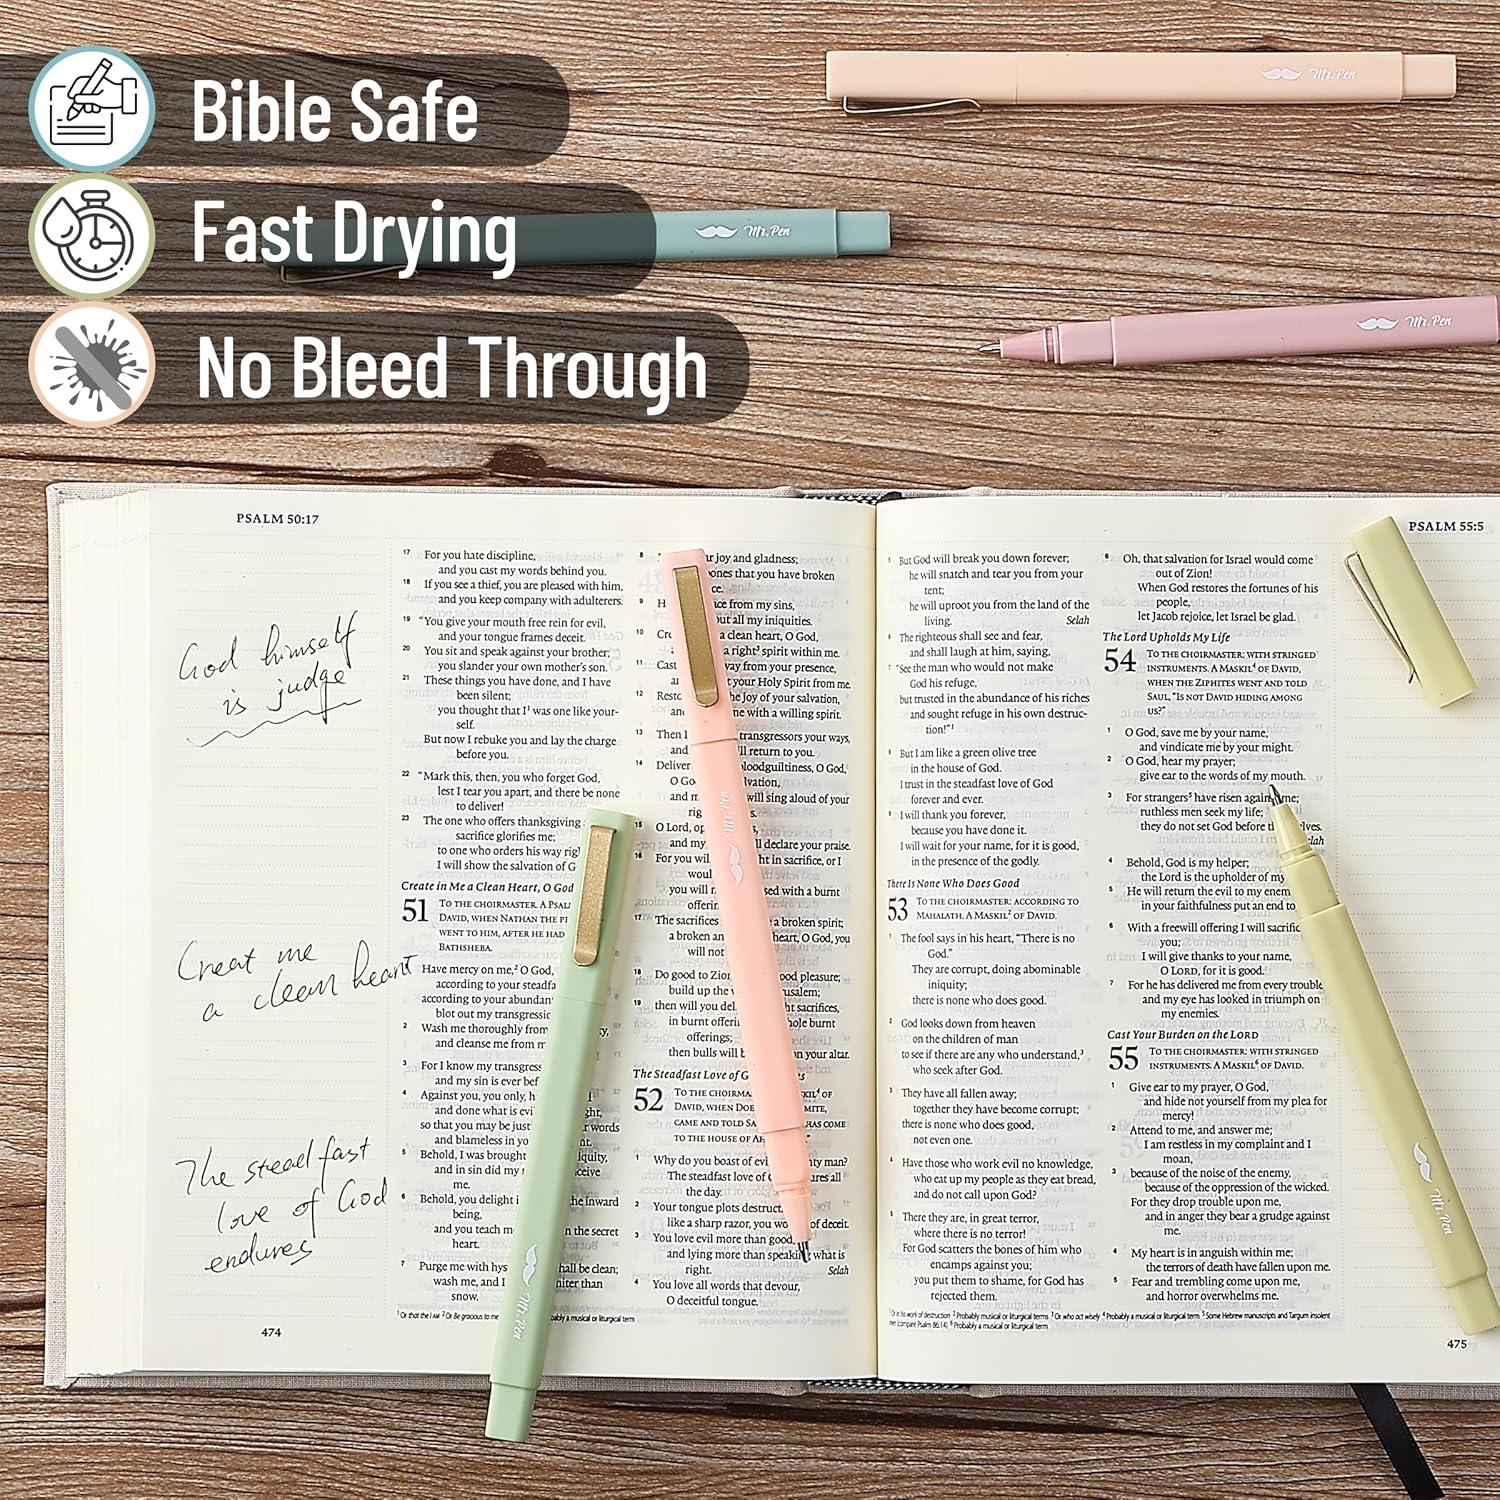 Bible Safe
Fast Drying
No Bleed Through
Mr. Pen
Mr. Pen
Mr. Pen
PSALM 50:17
God himself
is judge
Creat me
a clean heart
The steadfast
love of God
endures
17 For you hate discipline,
and you cast my words behind you.
18 If you see a thief, you are pleased with him,
and you keep company with adulterers.
19 "You give your mouth free rein for evil,
and your tongue frames deceit.
20 You sit and speak against your brother;
you slander your own mother's son.
21 These things you have done, and I have
been silent;
you thought that I¹ was one like your-
self.
But now I rebuke you and lay the charge
before you.
22 "Mark this, then, you who forget God,
lest I tear you apart, and there be none
to deliver!
23 The one who offers thanksgiving
sacrifice glorifies me;
to one who orders his way
I will show the salvation of
Create in Me a Clean Heart, O God
51 TO THE CHOIRMASTER. A
DAVID, WHEN NATHAN THE
WENT TO HIM, AFTER HE HAD
BATHSHEBA.
Have mercy on me,² O God,
according to your
according to your
blot out my
2 Wash me thoroughly from
and cleanse me from
3 For I know my
and my sin is ever
4 Against you, you only,
and done what is
so that you may be words
and blameless in
5 Behold, I was
and in sin did
me.
6 Behold, you delight inward
being,
and you teach in the secret
heart.
7 Purge me with shall be clean;
wash me, and I than
snow.
474
8 joy and gladness;
that you have broken
9 from my sins,
all my iniquities.
10 a clean heart, O God,
right³ spirit within me.
11 Cast from your presence,
your Holy Spirit from me.
12 the joy of your salvation,
me with a willing spirit.
13 Then transgressors your ways,
and return to you.
14 Deliver bloodguiltiness, O God,
O
and will sing aloud of your
15 O Lord,
and my declare your praise.
16 For you will in sacrifice, or I
would
you will with a burnt
17 The sacrifices a broken spirit;
a broken heart, O God, you
will not
18 Do good to good pleasure;
build up the
19 then will you sacrifices,
in burnt burnt
offerings;
then bulls will on your altar.
The Steadfast Love of
52 TO THE OF
DAVID, WHEN
CAME AND TOLD HAS COME
TO THE HOUSE OF
1 Why do you boast of man?
The steadfast love of all
the day.
2 Your tongue plots
like a sharp razor, you of deceit.
3 You love evil more than
and lying more than what is
right. Selah
4 You love all words that devour,
O deceitful tongue.
Mr. Pen
Mr. Pen
PSALM 55:5
5 But God will break you down forever;
he will snatch and tear you from your
tent;
he will uproot you from the land of the
living. Selah
6 The righteous shall see and fear,
and shall laugh at him, saying,
7 "See the man who would not make
God his refuge,
but trusted in the abundance of his riches
and sought refuge in his own destruc-
tion!"¹
8 But I am like a green olive tree
in the house of God.
I trust in the steadfast love of God
forever and ever.
9 I will thank you forever,
because you have done it.
I will wait for your name, for it is good,
in the presence of the godly.
There Is None Who Does Good
53 TO THE CHOIRMASTER: ACCORDING TO
MAHALATH. A MASKIL² OF DAVID.
1 The fool says in his heart, "There is no
God."
They are corrupt, doing abominable
iniquity;
there is none who does good.
2 God looks down from heaven
on the children of man
to see if there are any who understand,³
who seek after God.
3 They have all fallen away;
together they have become corrupt;
there is none who does good,
not even one.
4 Have those who work evil no knowledge,
who eat up my people as they eat bread,
and do not call upon God?
5 There they are, in great terror,
where there is no terror!
For God scatters the bones of him who
encamps against you;
you put them to shame, for God has
rejected them.
6 Oh, that salvation for Israel would come
out of Zion!
When God restores the fortunes of his
people,
let Jacob rejoice, let Israel be glad.
The Lord Upholds My Life
54 TO THE CHOIRMASTER: WITH STRINGED
INSTRUMENTS. A MASKIL⁴ OF DAVID,
WHEN THE ZIPHITES WENT AND TOLD
SAUL, "IS NOT DAVID HIDING AMONG
US?"
1 O God, save me by your name,
and vindicate me by your might.
2 O God, hear my prayer;
give ear to the words of my mouth.
3 For strangers⁵ have risen against me;
ruthless men seek my life;
they do not set God before
4 Behold, God is my helper;
the Lord is the upholder of my
5 He will return the evil to my
in your faithfulness put an end
6 With a freewill offering I will
you;
I will give thanks to your name,
O LORD, for it is good.
7 For he has delivered me from every trouble,
and my eye has looked in triumph on
my enemies.
Cast Your Burden on the LORD
55 TO THE CHOIRMASTER: WITH STRINGED
INSTRUMENTS. A MASKIL⁶ OF DAVID.
1 Give ear to my prayer, O God,
and hide not yourself from my plea for
mercy!
2 Attend to me, and answer me;
I am restless in my complaint and I
moan,
3 because of the noise of the enemy,
because of the oppression of the wicked.
For they drop trouble upon me,
and in anger they bear a grudge against
me.
4 My heart is in anguish within me;
the terrors of death have fallen upon me.
5 Fear and trembling come upon me,
and horror overwhelms me.
Mr. Pen
475